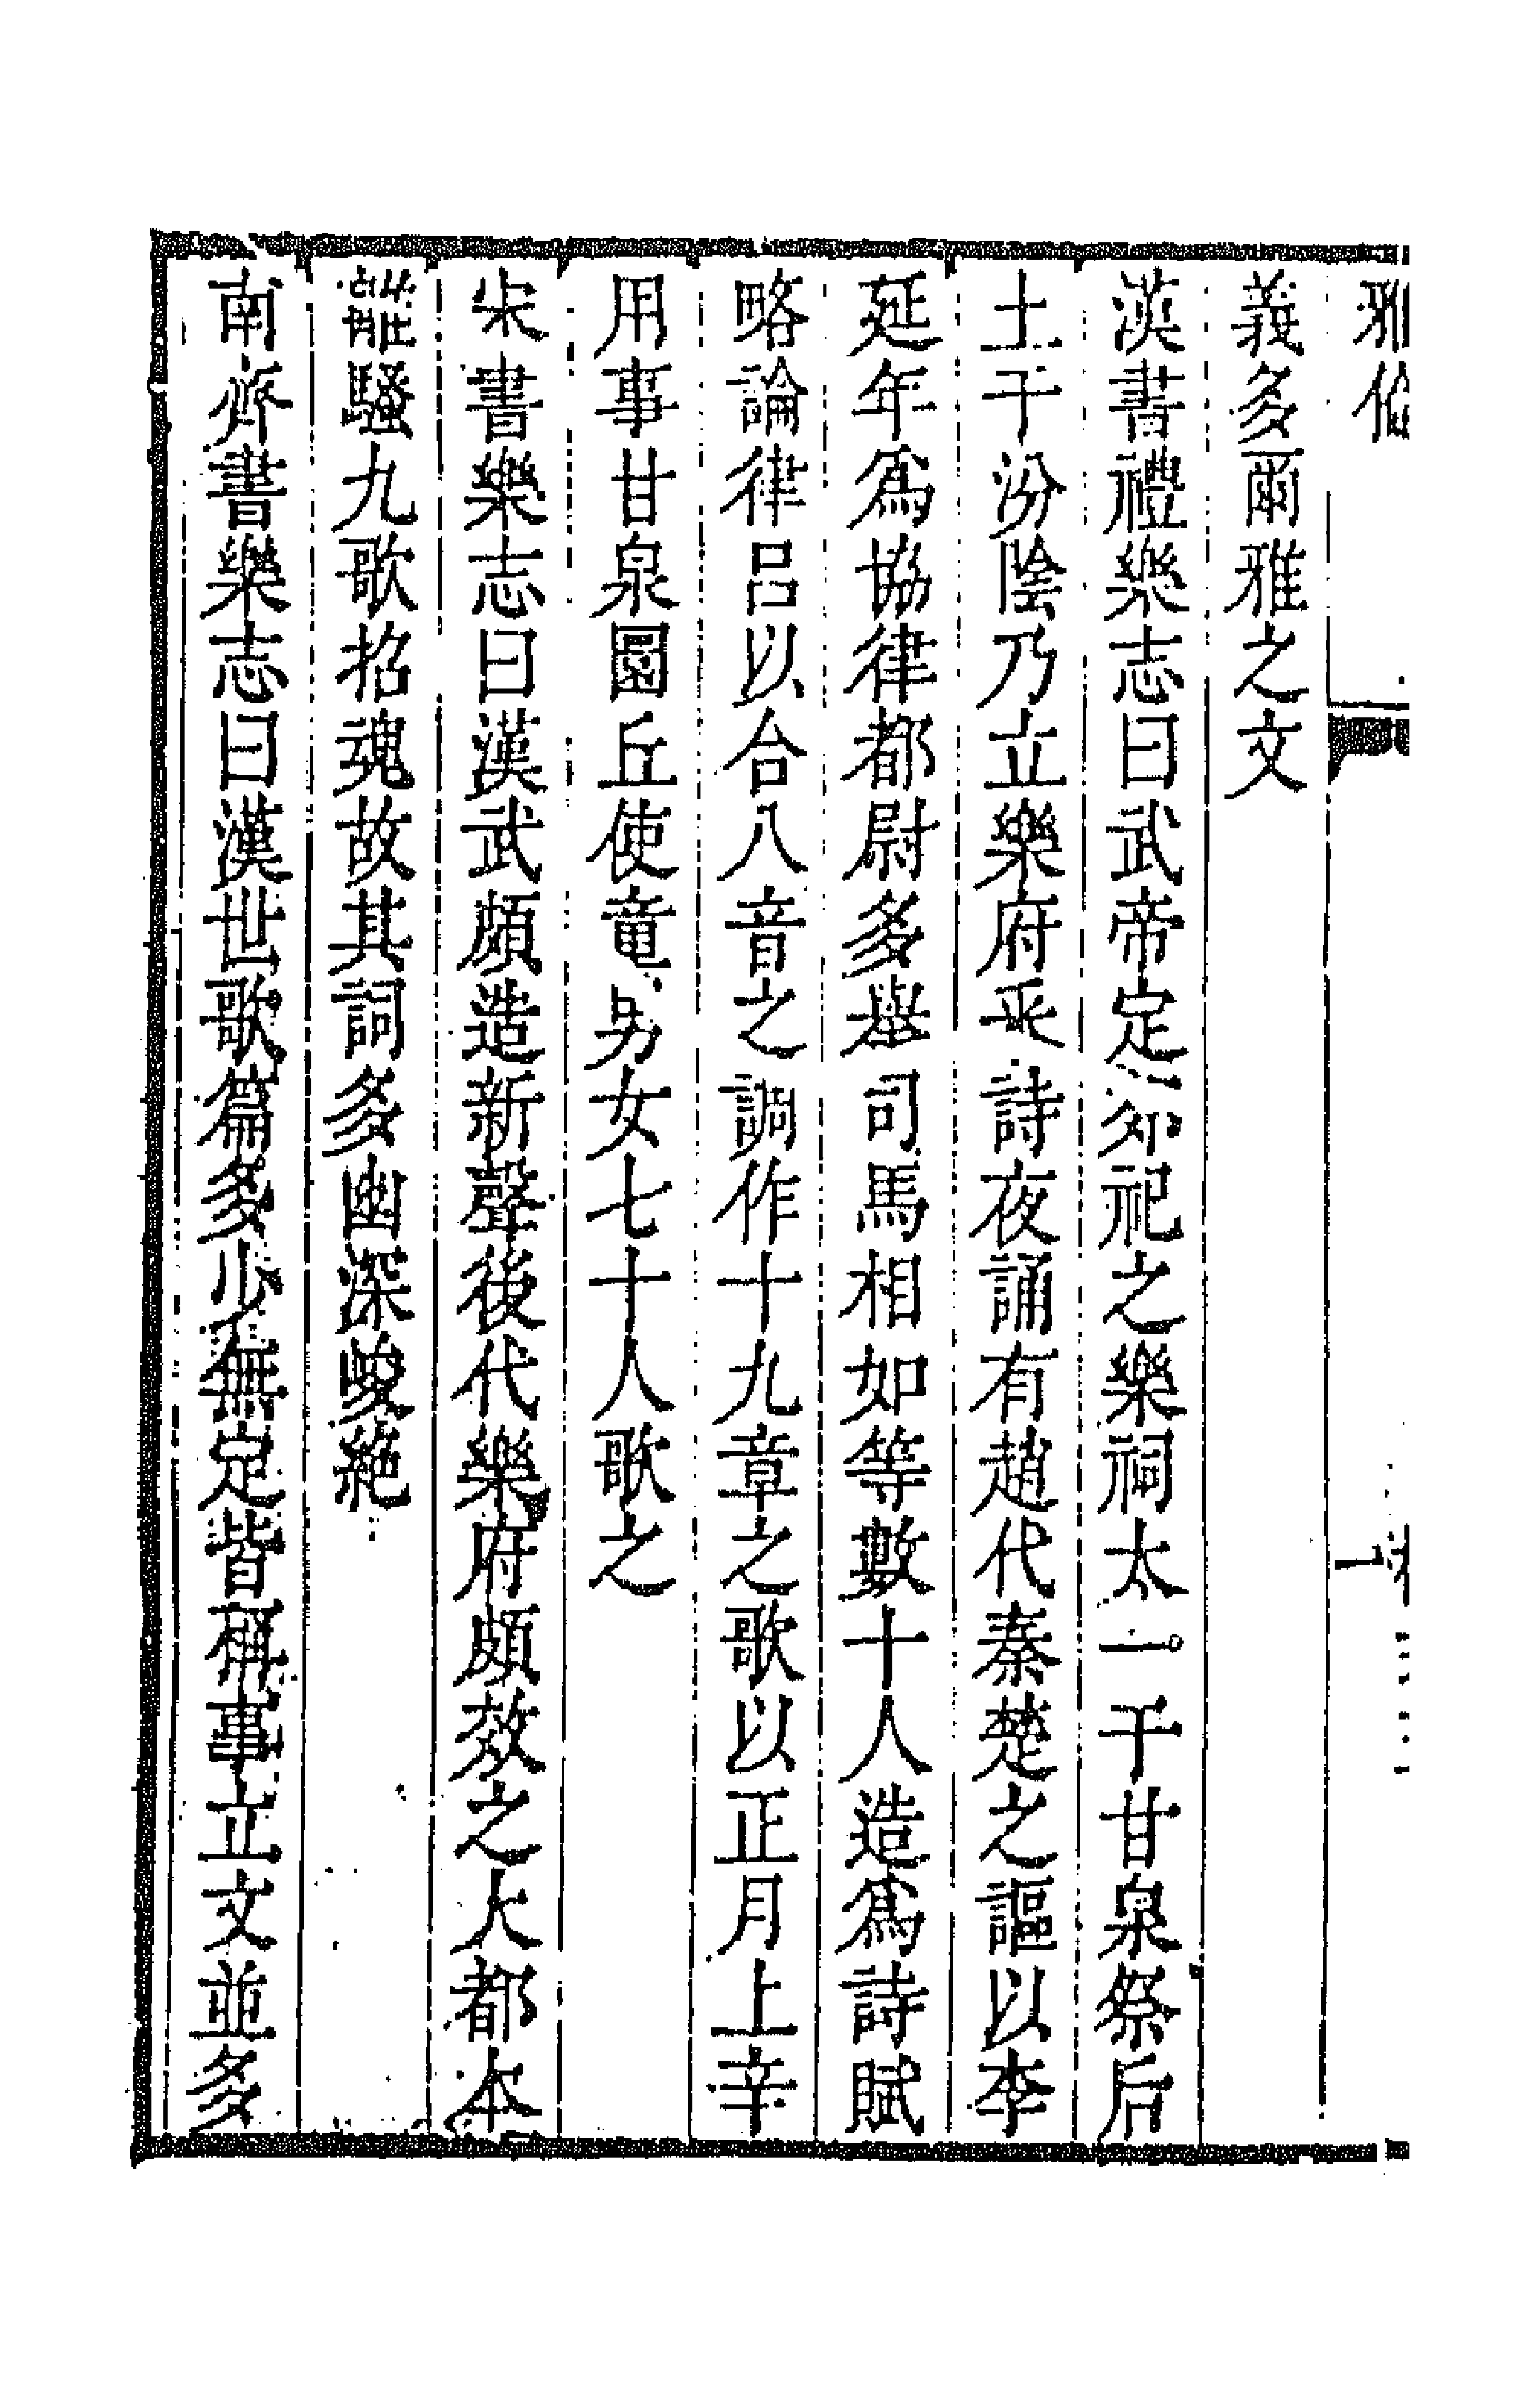 雅倫
卷一
義多爾雅之文
漢書禮樂志曰武帝定郊祀之樂祠太一。于甘泉祭后
土于汾陰乃立樂府采詩夜誦有趙代秦楚之謳以李
延年為協律都尉多舉司馬相如等數十人造為詩賦
略論律呂以合八音之調作十九章之歌以正月上辛
用事甘泉圜丘使童男女七十人歌之
宋書樂志曰漢武頗造新聲後代樂府頗效之大都本
離騷九歌招魂故其詞多幽深峻絕
南齊書樂志曰漢世歌篇多少無定皆稱事立文並多